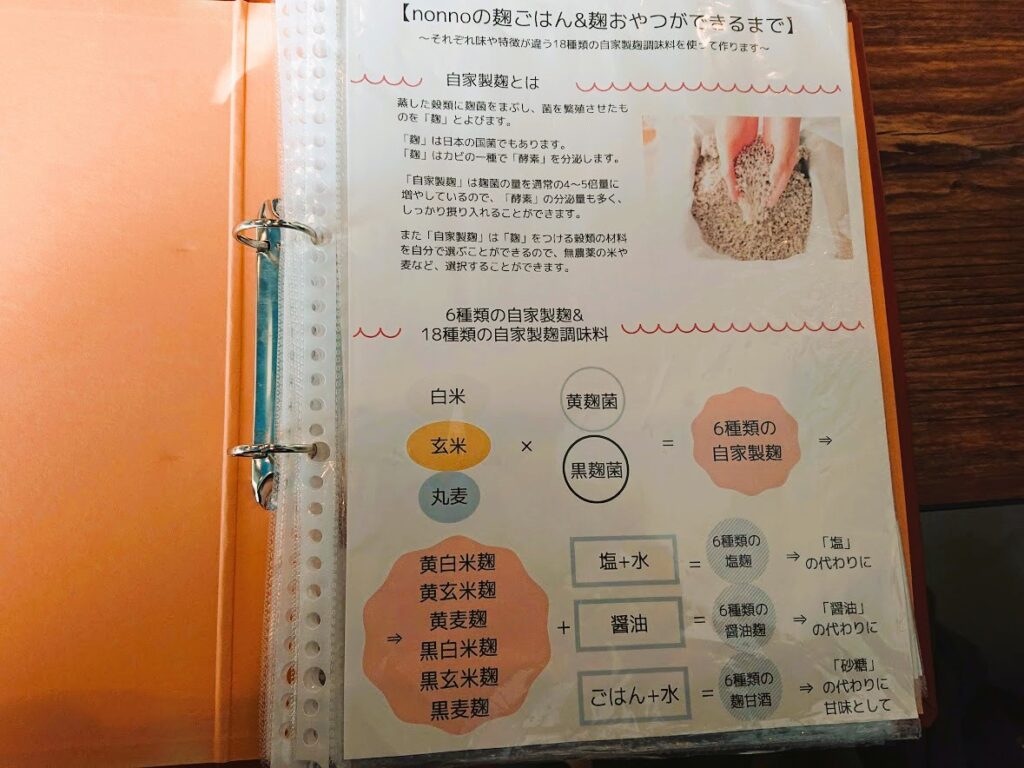 【nonnoの麹ごはん&麹おやつができるまで】
～それぞれ味や特徴が違う18種類の自家製麹調味料を使って作ります～
自家製麹とは
蒸した穀類に麹菌をまぶし、菌を繁殖させたも
のを「麹」とよびます。
「麹」は日本の国菌でもあります。
「麹」はカビの一種で「酵素」を分泌します。
「自家製麹」は麹菌の量を通常の4～5倍量に
増やしているので、「酵素」の分泌量も多く、
しっかり摂り入れることができます。
また「自家製麹」は「麹」をつける穀類の材料
を自分で選ぶことができるので、無農薬の米や
麦など、選択することができます。
6種類の自家製麹&
18種類の自家製麹調味料
白米
玄米
丸麦
×
黄麹菌
黒麹菌
=
6種類の
自家製麹
⇒
⇒
黄白米麹
黄玄米麹
黄麦麹
黒白米麹
黒玄米麹
黒麦麹
+
塩+水
=
6種類の
塩麹
⇒
「塩」
の代わりに
醤油
=
6種類の
醤油麹
⇒
「醤油」
の代わりに
ごはん+水
=
6種類の
麹甘酒
⇒
「砂糖」
の代わりに
甘味として